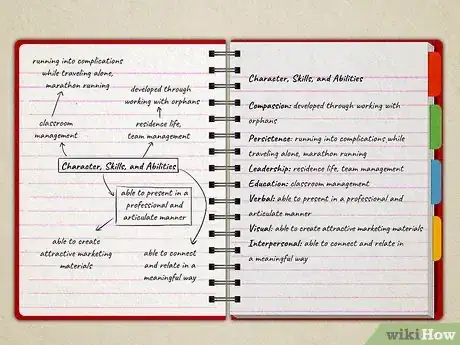 running into complications
while traveling alone,
marathon running
developed through
working with orphans
classroom
management
residence life,
team management
Character, Skills, and Abilities
able to present in a
professional and
articulate manner
able to create
attractive marketing
materials
able to connect
and relate in a
meaningful way
Character, Skills, and Abilities
Compassion: developed through working with
orphans
Persistence: running into complications while
traveling alone, marathon running
Leadership: residence life, team management
Education: classroom management
Verbal: able to present in a professional and
articulate manner
Visual: able to create attractive marketing materials
Interpersonal: able to connect and relate in
a meaningful way
wikiHow